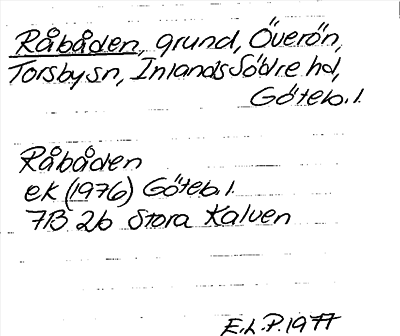 Råbåden, grund, Överön,
Torsby sn, Inlands Södre hd,
Göteb. l.
Råbåden
ek (1976) Göteb. l.
7B 2b Stora Kalven
E.L.P. 1977